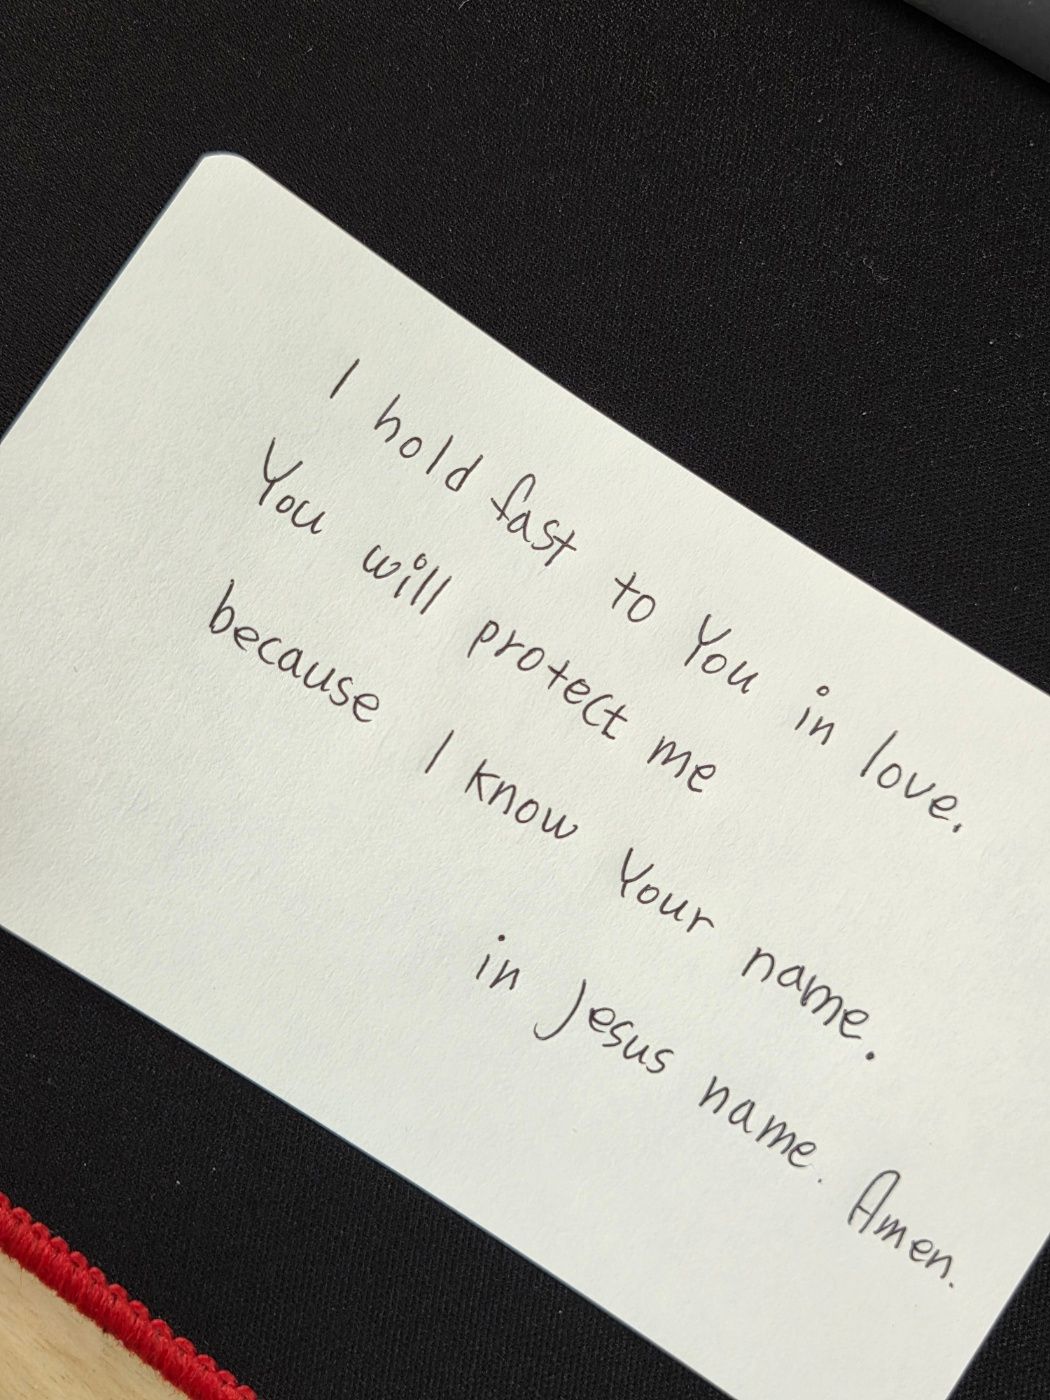 I hold fast to You in love.
You will protect me
because I know Your name.
in Jesus name. Amen.